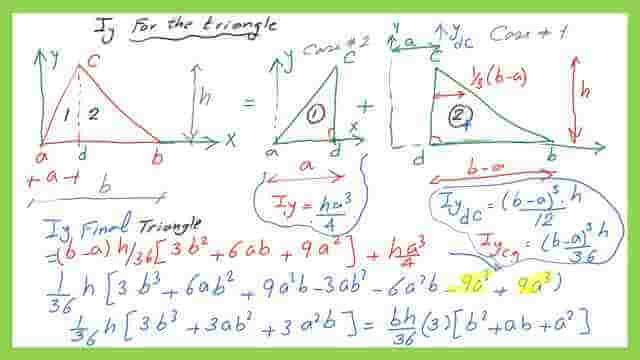 Iy For the triangle
y c 1 2 h a d b x
+a+
b
=
y Case #2 c 1 x a d
a
Iy = ha³/4
+
y a y dc Case # 1
c 1/3(b-a) 2 h d b
b-a
Iy dc = (b-a)³·h/12
Iy cg = (b-a)³h/36
Iy Final Triangle
=(b-a)h/36[3b²+6ab+9a²]+ha³/4
1/36 h[3b³+6ab²+9a²b-3ab²-6a²b-9a³+9a³)
1/36 h[3b³+3ab²+3a²b]=bh/36(3)[b²+ab+a²]